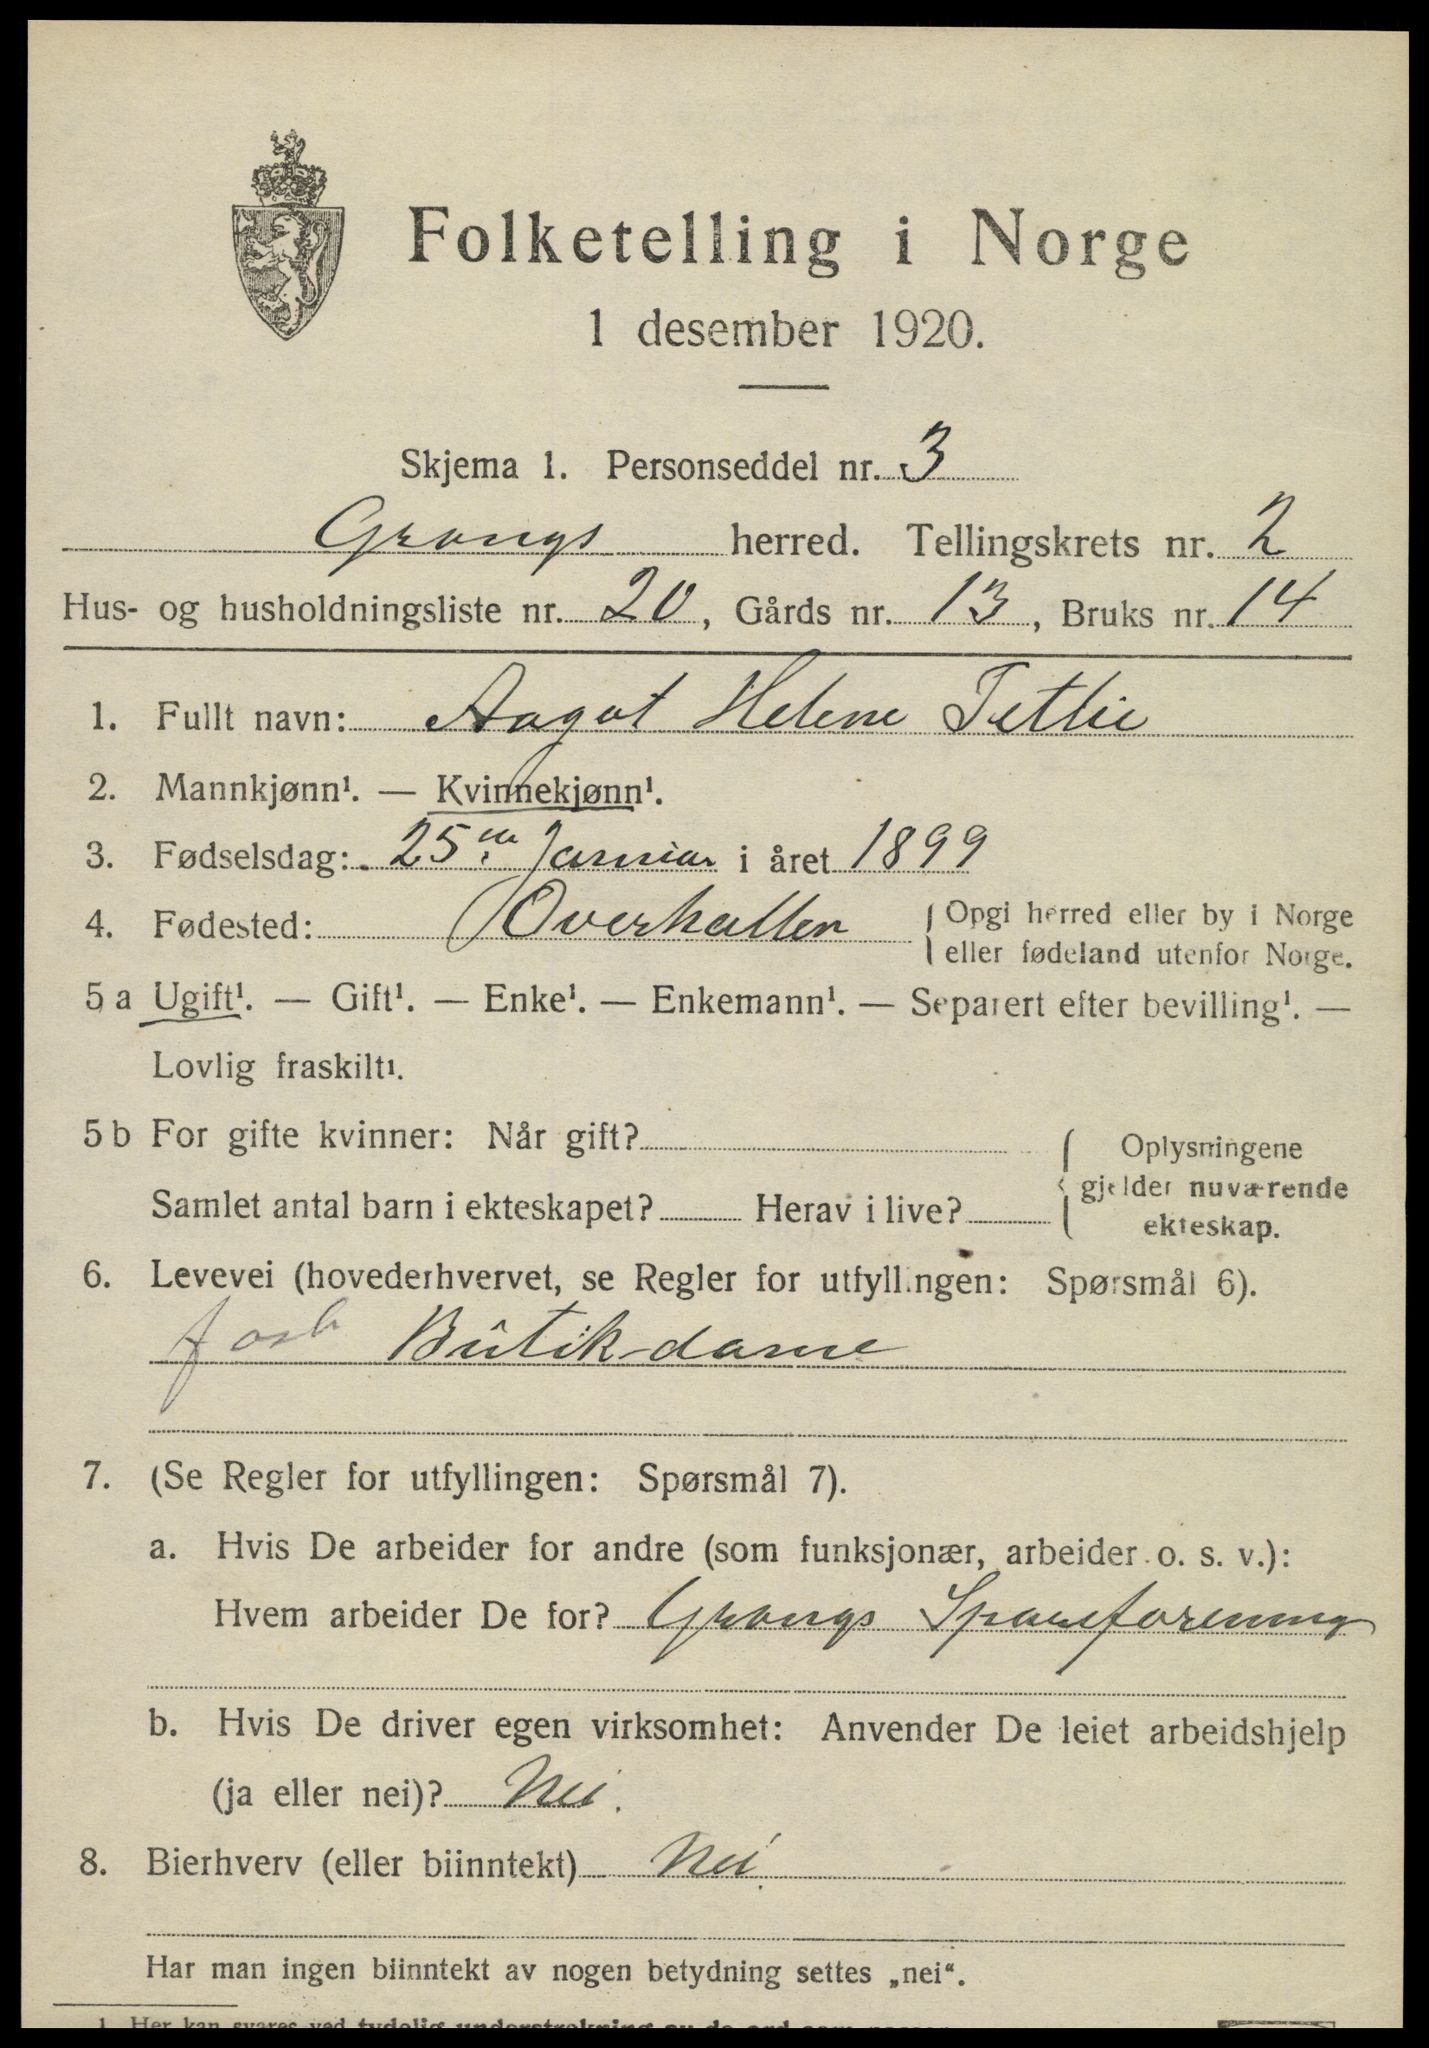 Folketelling i Norge
1 desember 1920.
Skjema 1. Personseddel nr. 3
Grongs herred. Tellingskrets nr. 2
Hus- og husholdningsliste nr. 20, Gårds nr. 13, Bruks nr. 14
1. Fullt navn: Aagot Helene Tetlie
2. Mannkjønn¹. — Kvinnekjønn¹.
3. Fødselsdag: 25de Januar i året 1899
4. Fødested: Overhallen { Opgi herred eller by i Norge
eller fødeland utenfor Norge.
5 a Ugift¹. — Gift¹. — Enke¹. — Enkemann¹. — Separert efter bevilling¹. —
Lovlig fraskilt¹.
5 b For gifte kvinner: Når gift? { Oplysningene
gjelder nuværende
Samlet antal barn i ekteskapet? Herav i live?
ekteskap.
6. Levevei (hovederhvervet, se Regler for utfyllingen: Spørsmål 6).
Butik-dame
7. (Se Regler for utfyllingen: Spørsmål 7).
a. Hvis De arbeider for andre (som funksjonær, arbeider o. s. v.):
Hvem arbeider De for? Grongs Spareforening
b. Hvis De driver egen virksomhet: Anvender De leiet arbeidshjelp
(ja eller nei)? Nei.
8. Bierhverv (eller biinntekt) Nei.
Har man ingen biinntekt av nogen betydning settes „nei“.
1 Her kan svares ved tydelig understrekning av de ord som passer